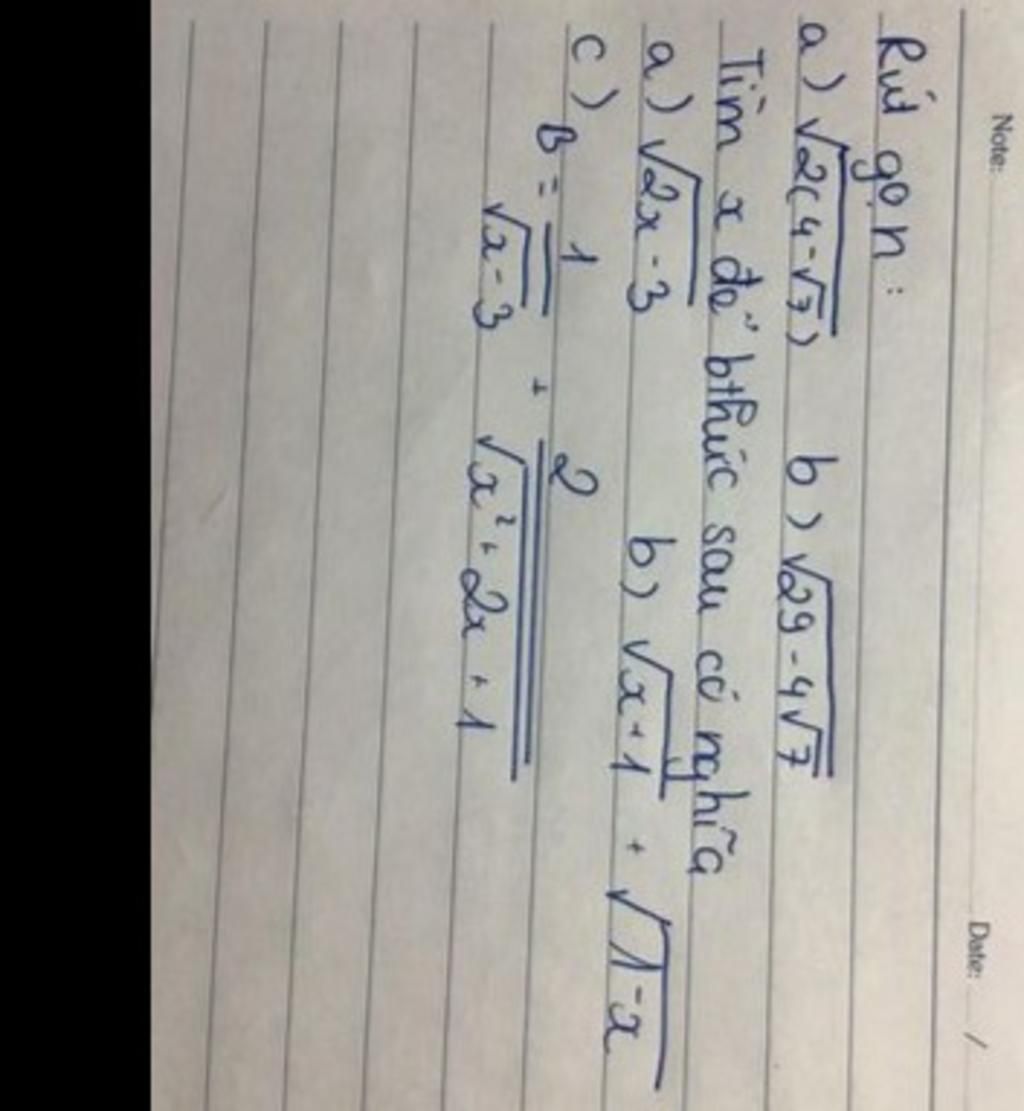 Note: Date: /
Rút gọn :
a) √2(4-√7) b) √29-4√7
Tìm x để bthức sau có nghĩa
a) √2x-3 b) √x+1 + √1-x
c) B = 1/(√x-3) + 2/(√x²+2x+1)